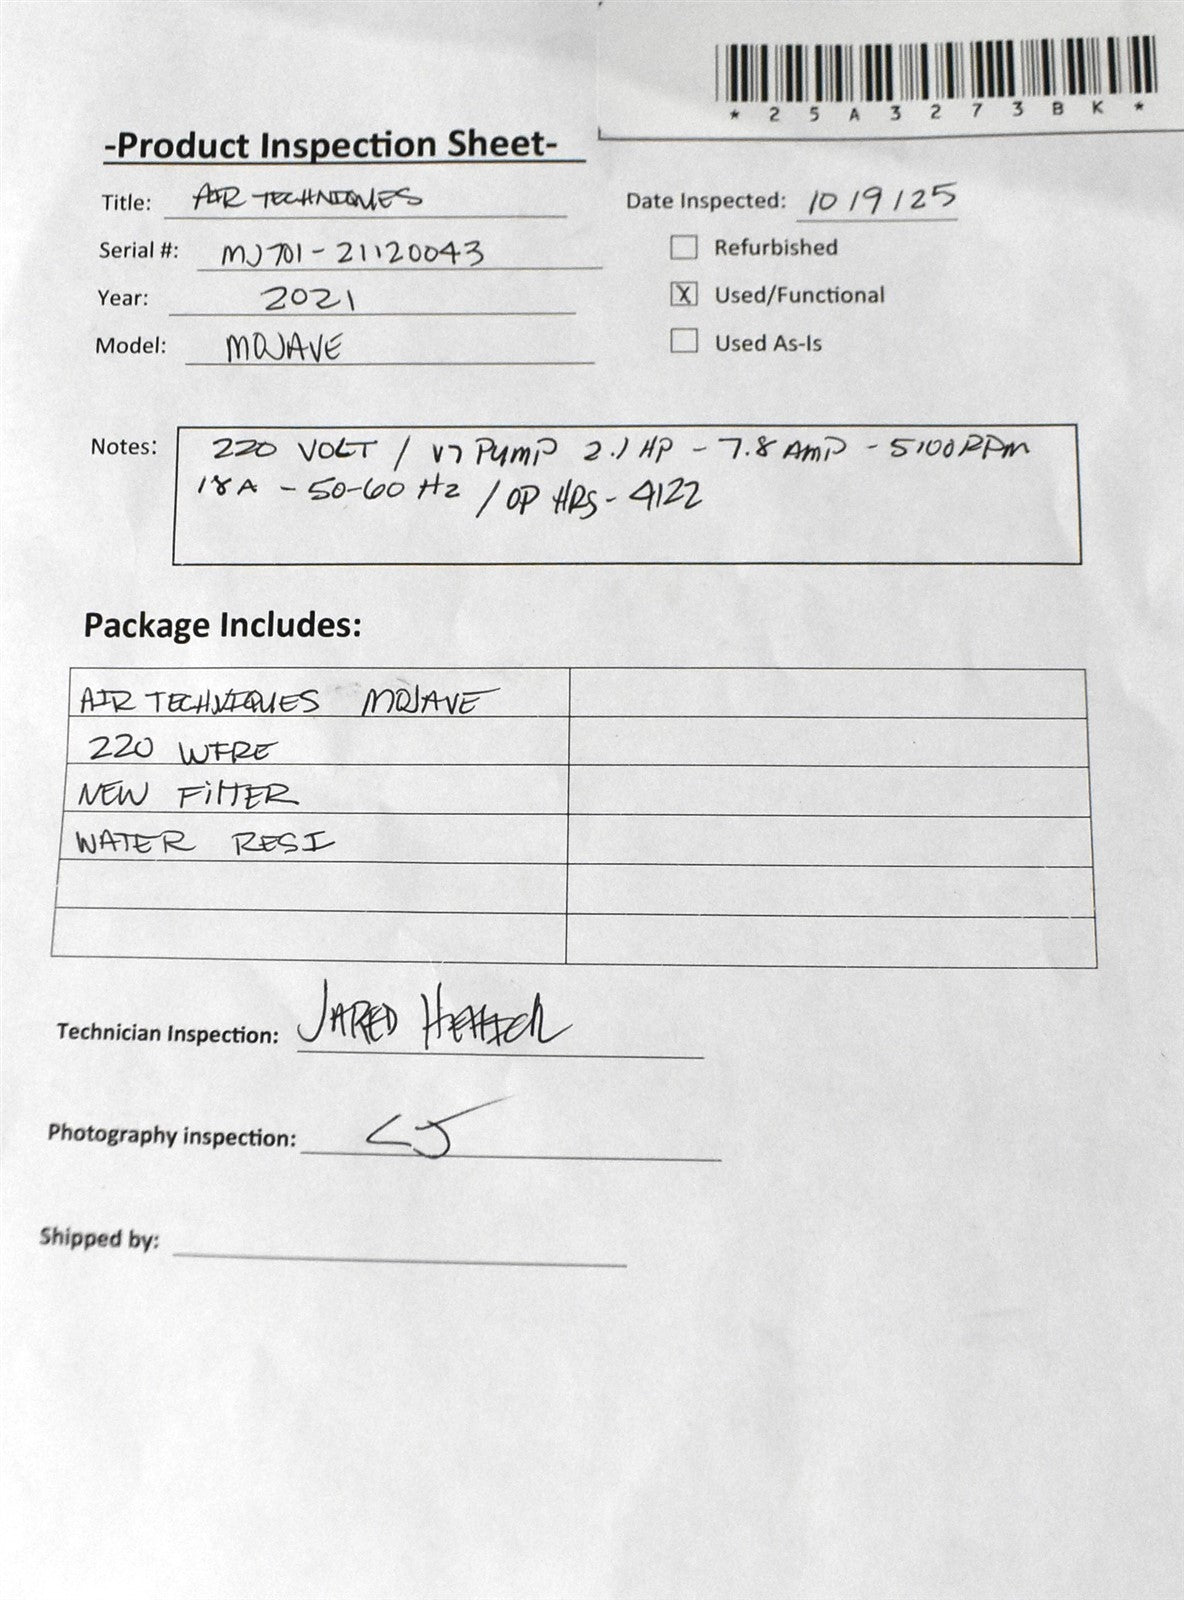 *25A3273BK*
-Product Inspection Sheet-
Title: AIR TECHNIQUES
Date Inspected: 10/9/25
Serial #: MJ701-21120043
Refurbished
Year: 2021
X Used/Functional
Model: MOJAVE
Used As-Is
Notes: 220 VOLT / V7 PUMP 2.1 HP - 7.8 AMP - 5100 RPM
18A - 50-60 Hz / OP HRS - 4122
Package Includes:
AIR TECHNIQUES MOJAVE
220 WIRE
NEW FilTER
WATER RESI
Technician Inspection: JARED
Photography inspection: CJ
Shipped by: